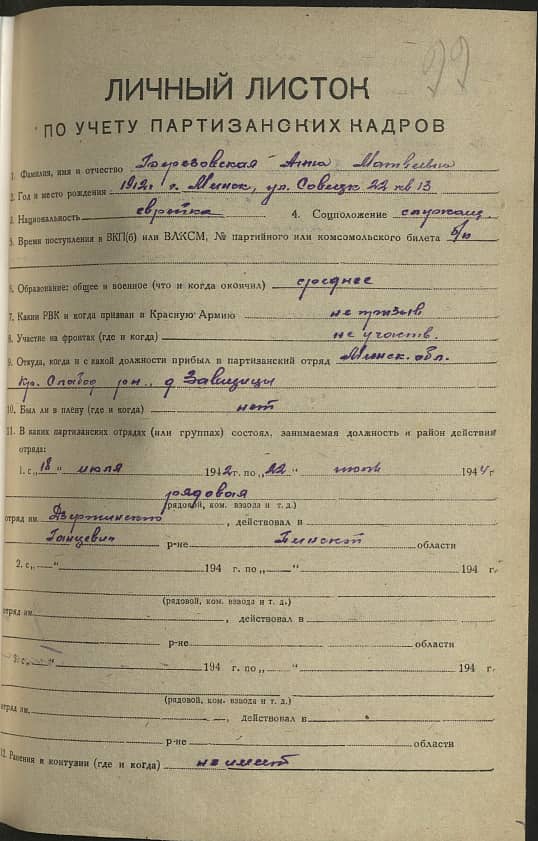 99
ЛИЧНЫЙ ЛИСТОК
ПО УЧЕТУ ПАРТИЗАНСКИХ КАДРОВ
1. Фамилия, имя и отчество Березовская Анна Матвеевна
2. Год и место рождения 1912г г. Минск, ул. Совецк 22 кв 13
3. Национальность еврейка 4. Соцположение служащ.
5. Время поступления в ВКП(б) или ВЛКСМ, № партийного или комсомольского билета б/п
6. Образование: общее и военное (что и когда окончил) среднее
7. Каким РВК и когда призван в Красную Армию не призыв
8. Участие на фронтах (где и когда) не участв.
9. Откуда, когда и с какой должности прибыл в партизанский отряд Минск. обл.
Кр. Слобод рон., д
10. Был ли в плену (где и когда) нет
11. В каких партизанских отрядах (или группах) состоял, занимаемая должность и район действий
отряда:
1. с „18 “ июля 1942г. по „22 “ 1944г.
рядовая
(рядовой, ком. взвода и т. д.)
отряд им. Дзержинского , действовал в
Ганцевич р-не Пинской области
2. с „ “ 194 г. по „ “ 194 г.
(рядовой, ком. взвода и т. д.)
отряд им. , действовал в
р-не области
3. с „ “ 194 г. по „ “ 194 г.
(рядовой, ком. взвода и т. д.)
отряд им. , действовал в
р-не области
12. Ранения и контузии (где и когда) не имеет